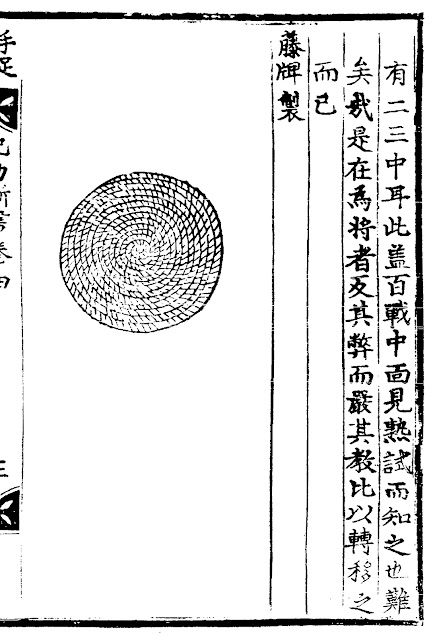 有二三中耳此盖百戰中面見熟試而知之也難
矣哉是在為将者反其弊而嚴其教比以轉移之
而已
藤牌製
手足
新書卷四